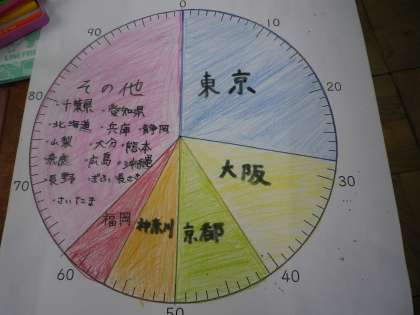 0
10
20
30
40
50
60
70
80
90
東京
大阪
京都
神奈川
福岡
その他
・千葉県 ・愛知県
・北海道 ・兵庫 ・静岡
・山梨 ・大分 ・熊本
・広島 ・沖縄
・長野
・さいたま